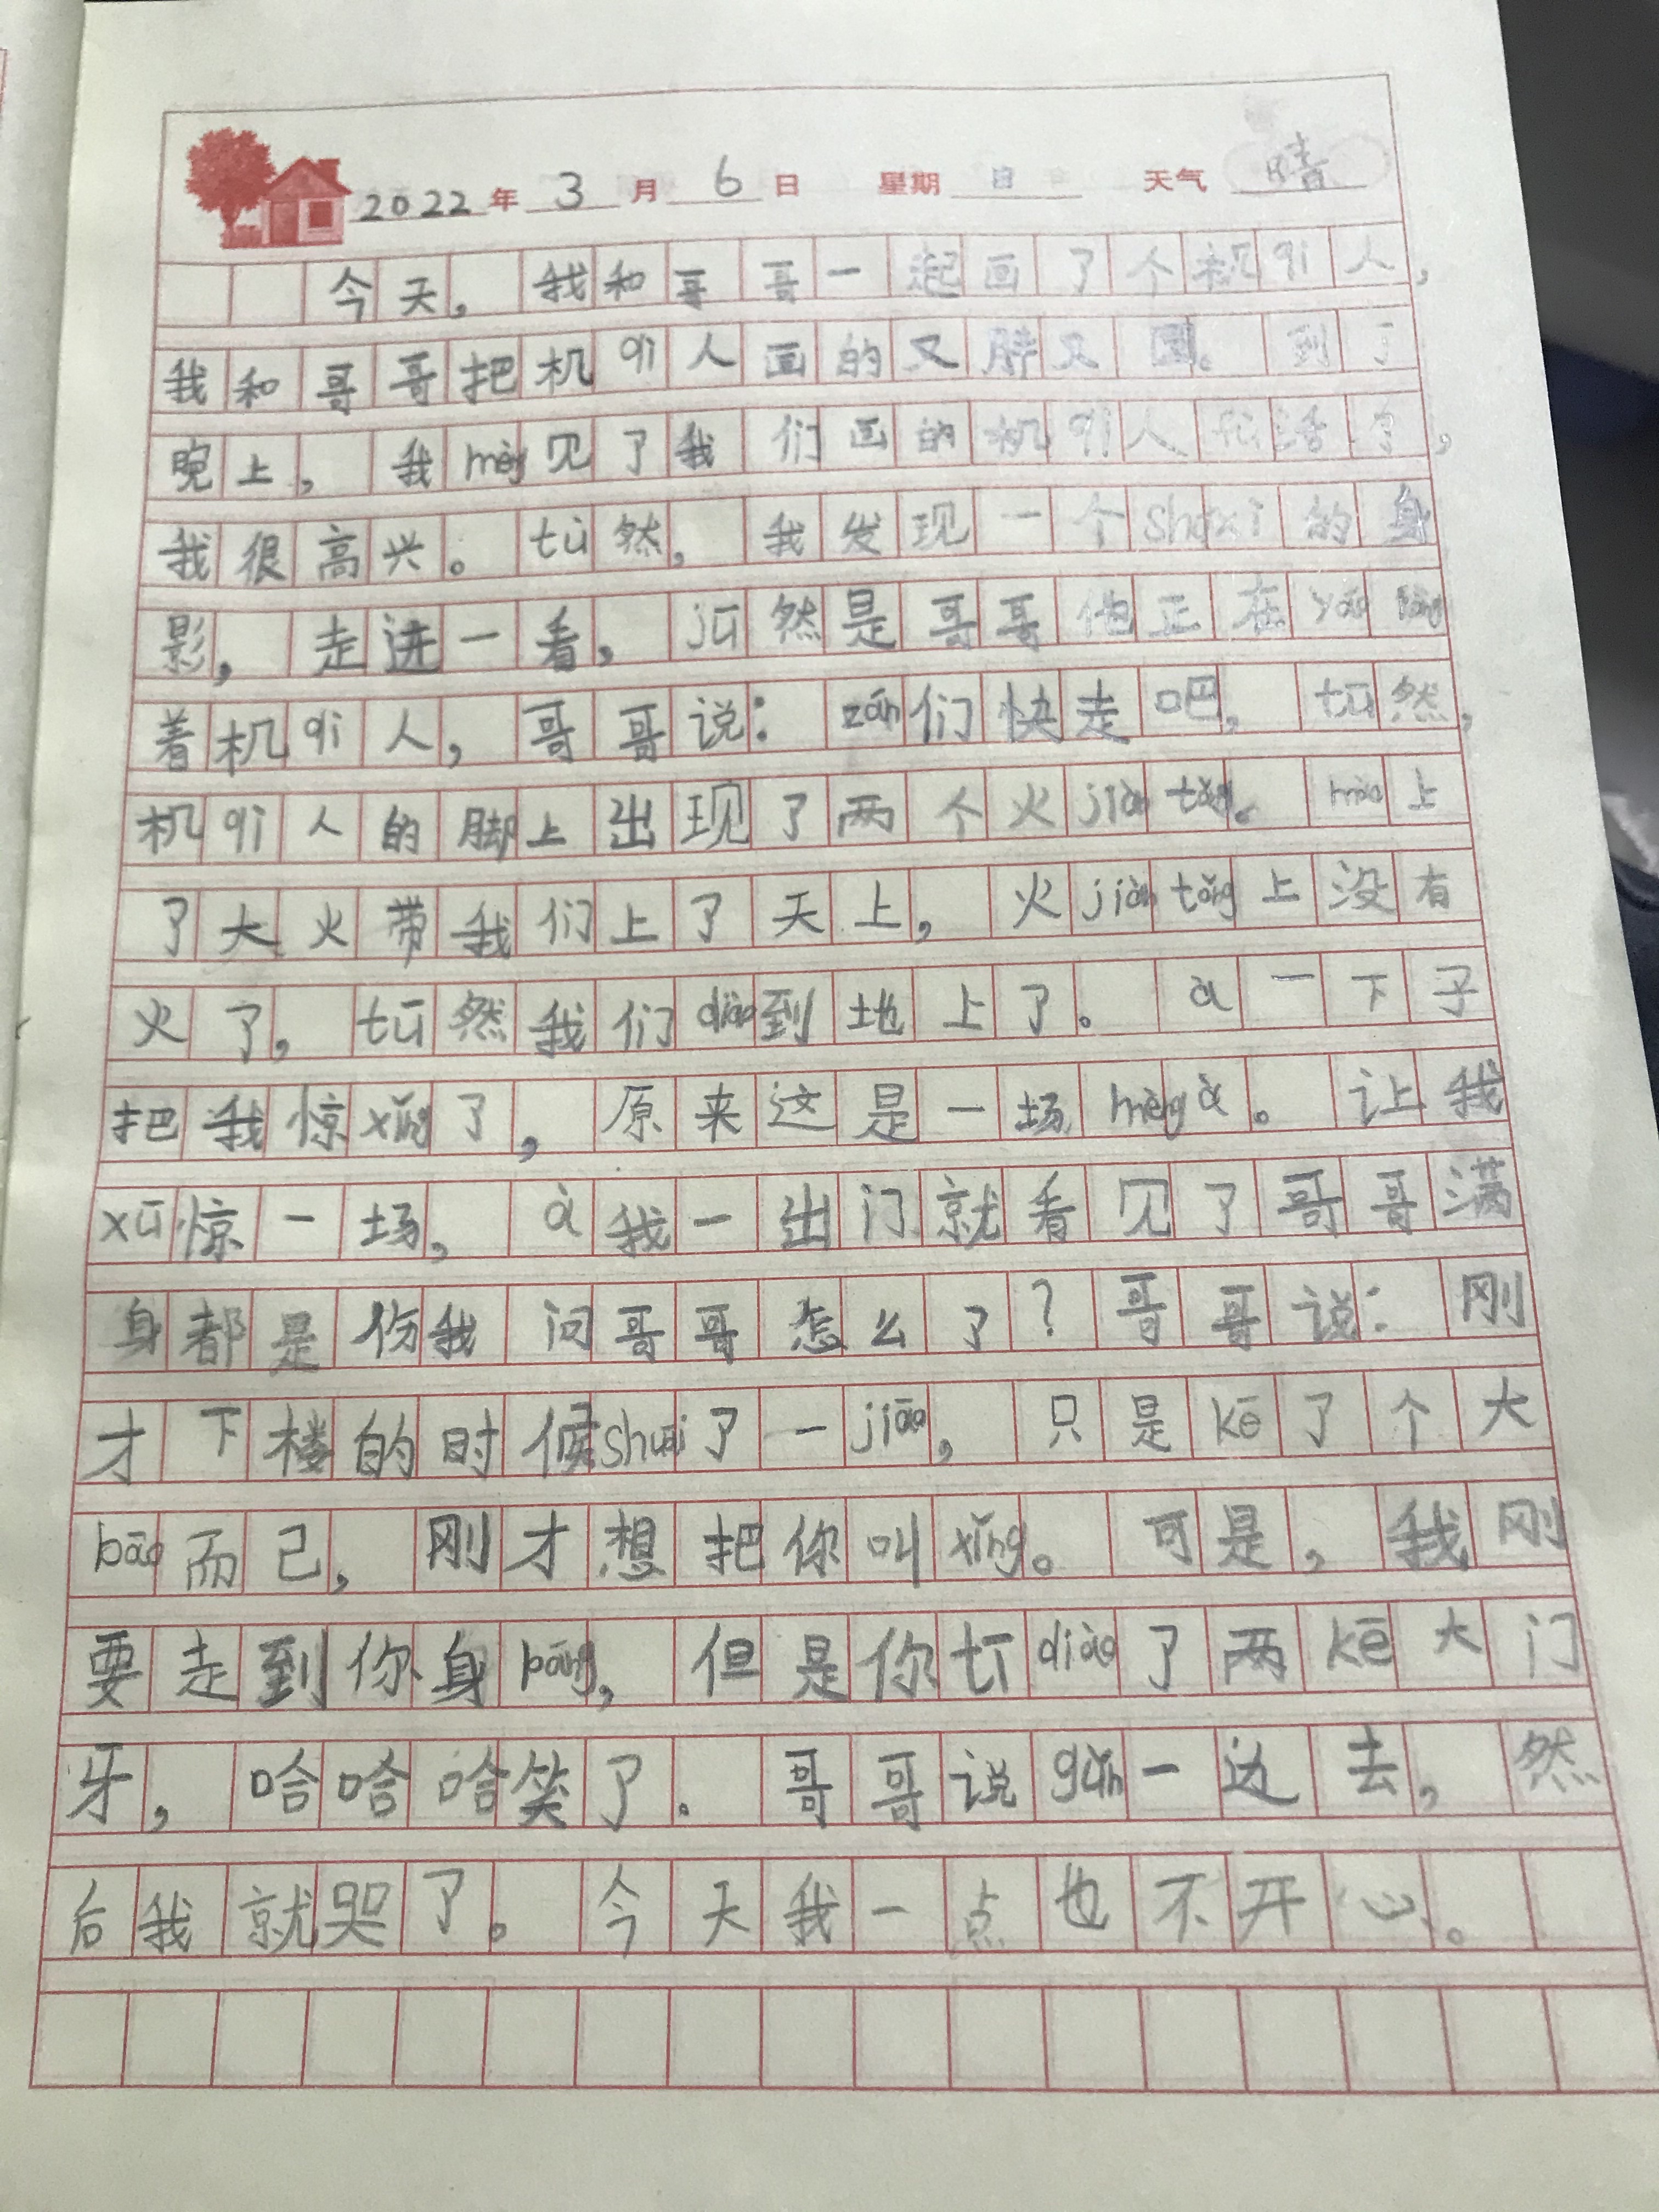 2022年3月6日 星期日 天气晴
今天，我和哥哥一起画了个机qi人，
我和哥哥把机qi人画的又胖又圆。到了
晚上，我mèng见了我们画的机qi人活了，
我很高兴。tū然，我发现一个shuxi的身
影，走进一看，jū然是哥哥他正在yáo
着机qi人，哥哥说：zán们快走吧，tū然，
机qi人的脚上出现了两个火jiàn tǒng。mào上
了大火带我们上了天上，火jiàn tǒng上没有
火了，tū然我们diào到地上了。à一下子
把我惊xǐng了，原来这是一场mèng à。让我
xū惊一场，à我一出门就看见了哥哥满
身都是伤我问哥哥怎么了？哥哥说：刚
才下楼的时候shuāi了一jiāo，只是kē了个大
bāo而己，刚才想把你叫xǐng。可是，我刚
要走到你身páng，但是你tī diào了两kē大门
牙，哈哈哈笑了。哥哥说gǔn一边去，然
后我就哭了。今天我一点也不开心。